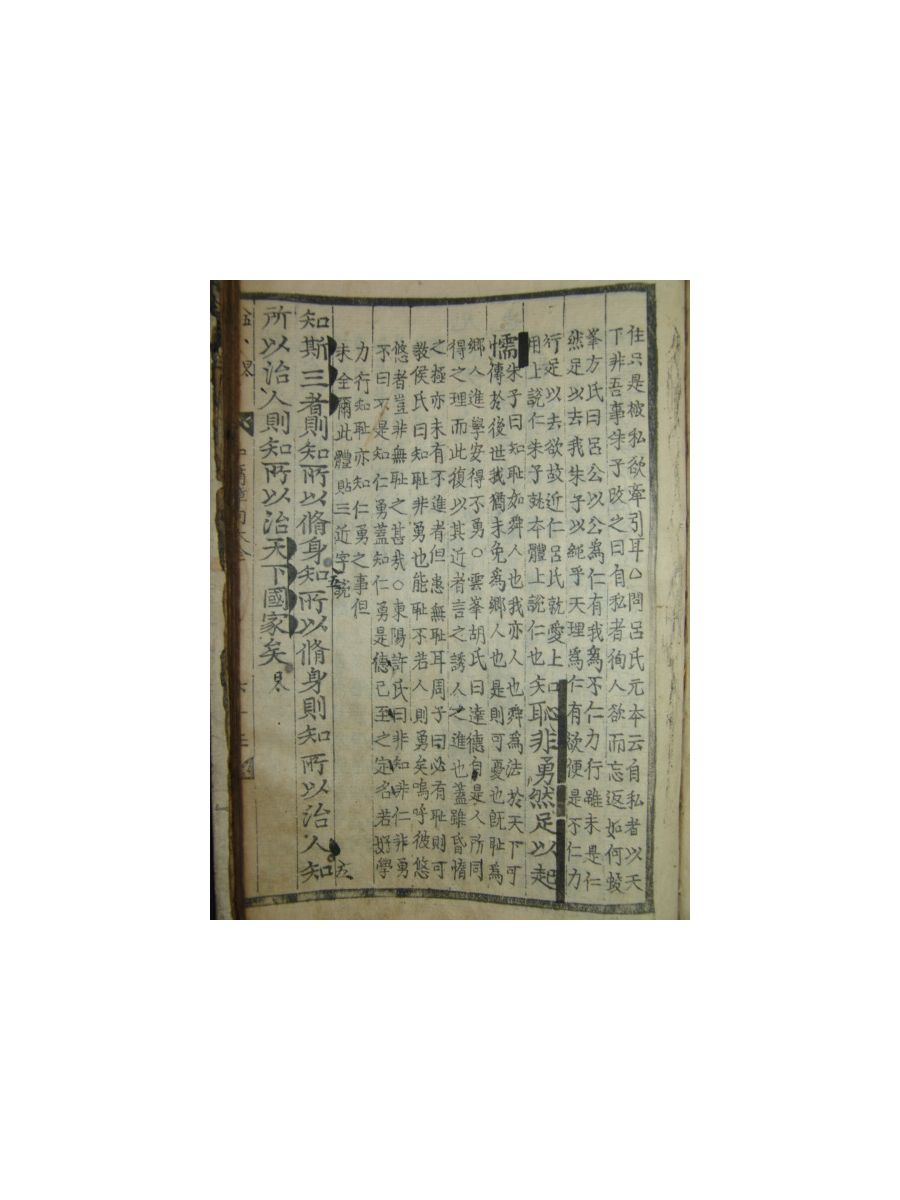 住只是被私欲牽引耳○問呂氏元本云自私者以天
下非吾事朱子改之曰自私者徇人欲而忘返如何蛟
峯方氏曰呂公以公爲仁有我爲不仁力行雖未是仁
然足以去我朱子以純乎天理爲仁有欲便是不仁力
行足以去欲故近仁呂氏就愛上
用上說仁朱子就本體上說仁也
知恥非勇然足以起
懦
朱子曰知恥如舜人也我亦人也舜爲法於天下可
傳於後世我猶未免爲鄉人也是則可憂也旣恥爲
鄉人進學安得不勇○雲峯胡氏曰達德自是人所同
得之理而此復以其近者言之誘人之進也蓋雖昏惰
之極亦未有不進者但患無恥耳周子曰必有恥則可
敎侯氏曰知恥非勇也能恥不若人則勇矣嗚呼彼悠
悠者豈非無恥之甚哉○東陽許氏曰非知非仁非勇
不曰不是知仁勇蓋知仁勇是德已至之定名若好學
力行知恥亦知仁勇之事但
未全爾此體貼三近字說
知斯三者則知所以脩身知所以脩身則知所以治人知
所以治人則知所以治天下國家矣